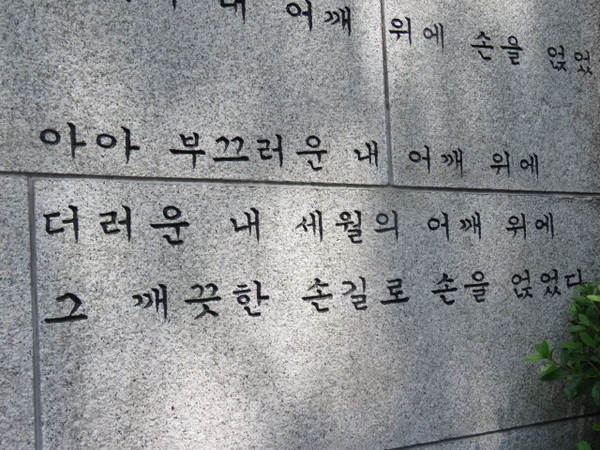 내 어깨 위에 손을 얹었
아아 부끄러운 내 어깨 위에
더러운 내 세월의 어깨 위에
그 깨끗한 손길로 손을 얹었다